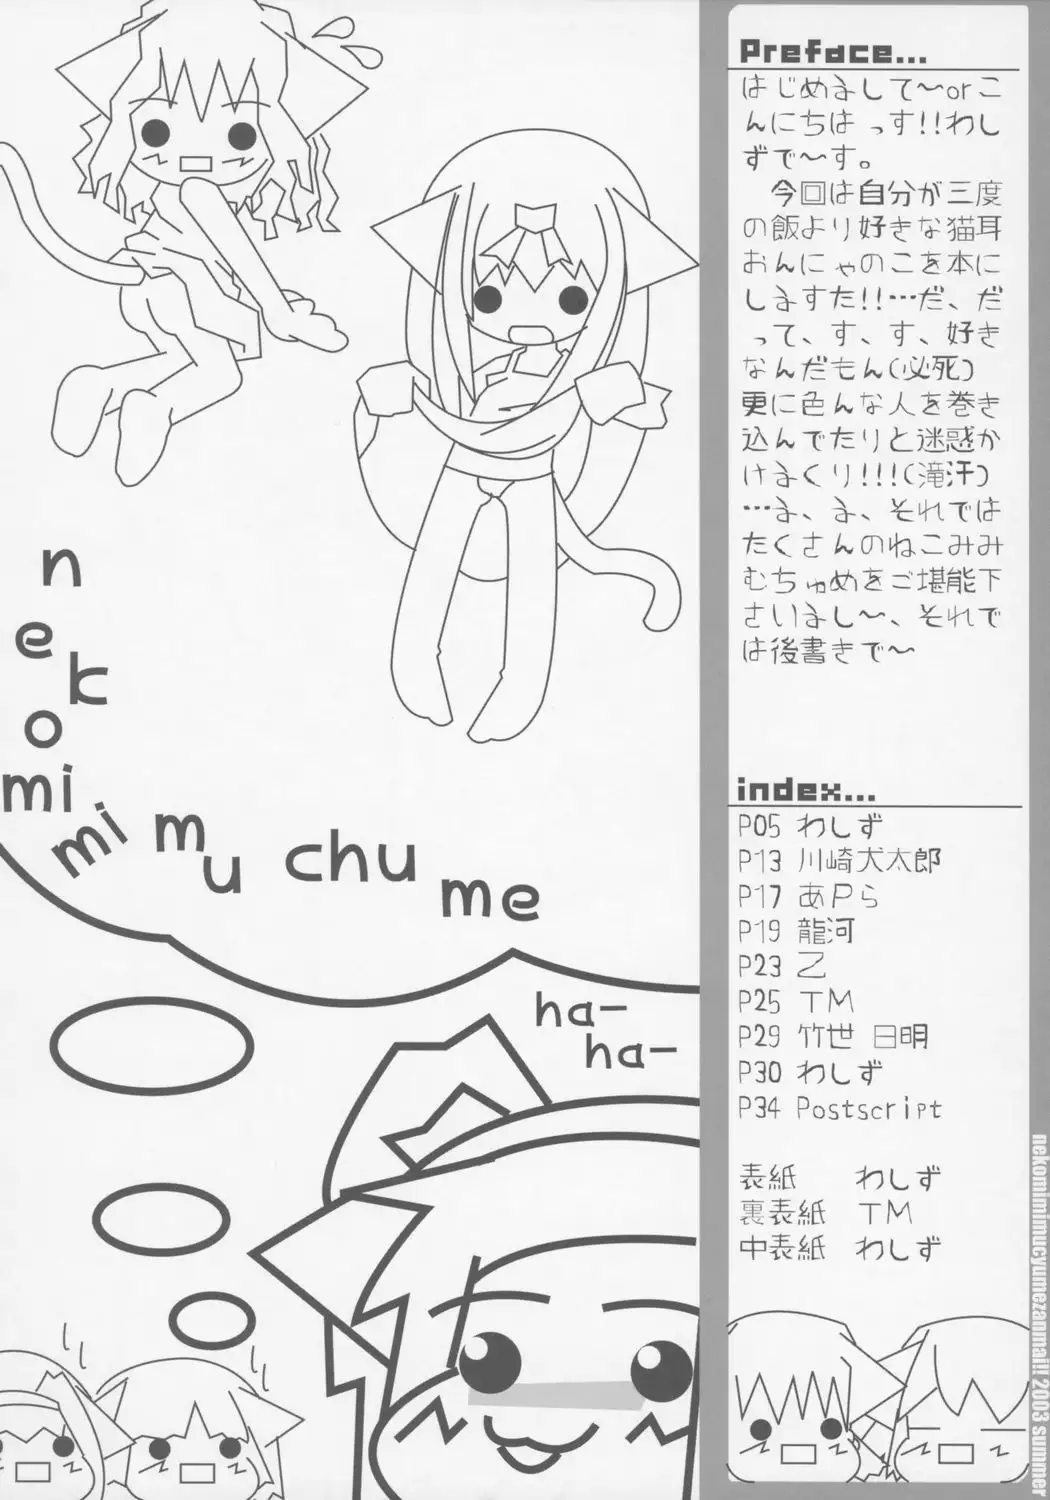 Preface...
はじめまして〜orこ
んにちは っす!!わし
ずで〜す。
今回は自分が三度
の飯より好きな猫耳
おんにゃのこを本に
しますた!!…だ、だ
って、す、す、好き
なんだもん(必死)
更に色んな人を巻き
込んでたりと迷惑か
けまくり!!!(滝汗)
…ま、ま、それでは
たくさんのねこみみ
むちゅめをご堪能下
さいまし〜、それで
は後書きで〜
index...
P05 わしず
P13 川崎犬太郎
P17 あPら
P19 龍河
P23 乙
P25 TM
P29 竹世 日明
P30 わしず
P34 Postscript
表紙 わしず
裏表紙 TM
中表紙 わしず
nekomimi mi mu chu me
ha-
ha-
nekomimimucyumezanmai!! 2003 summer